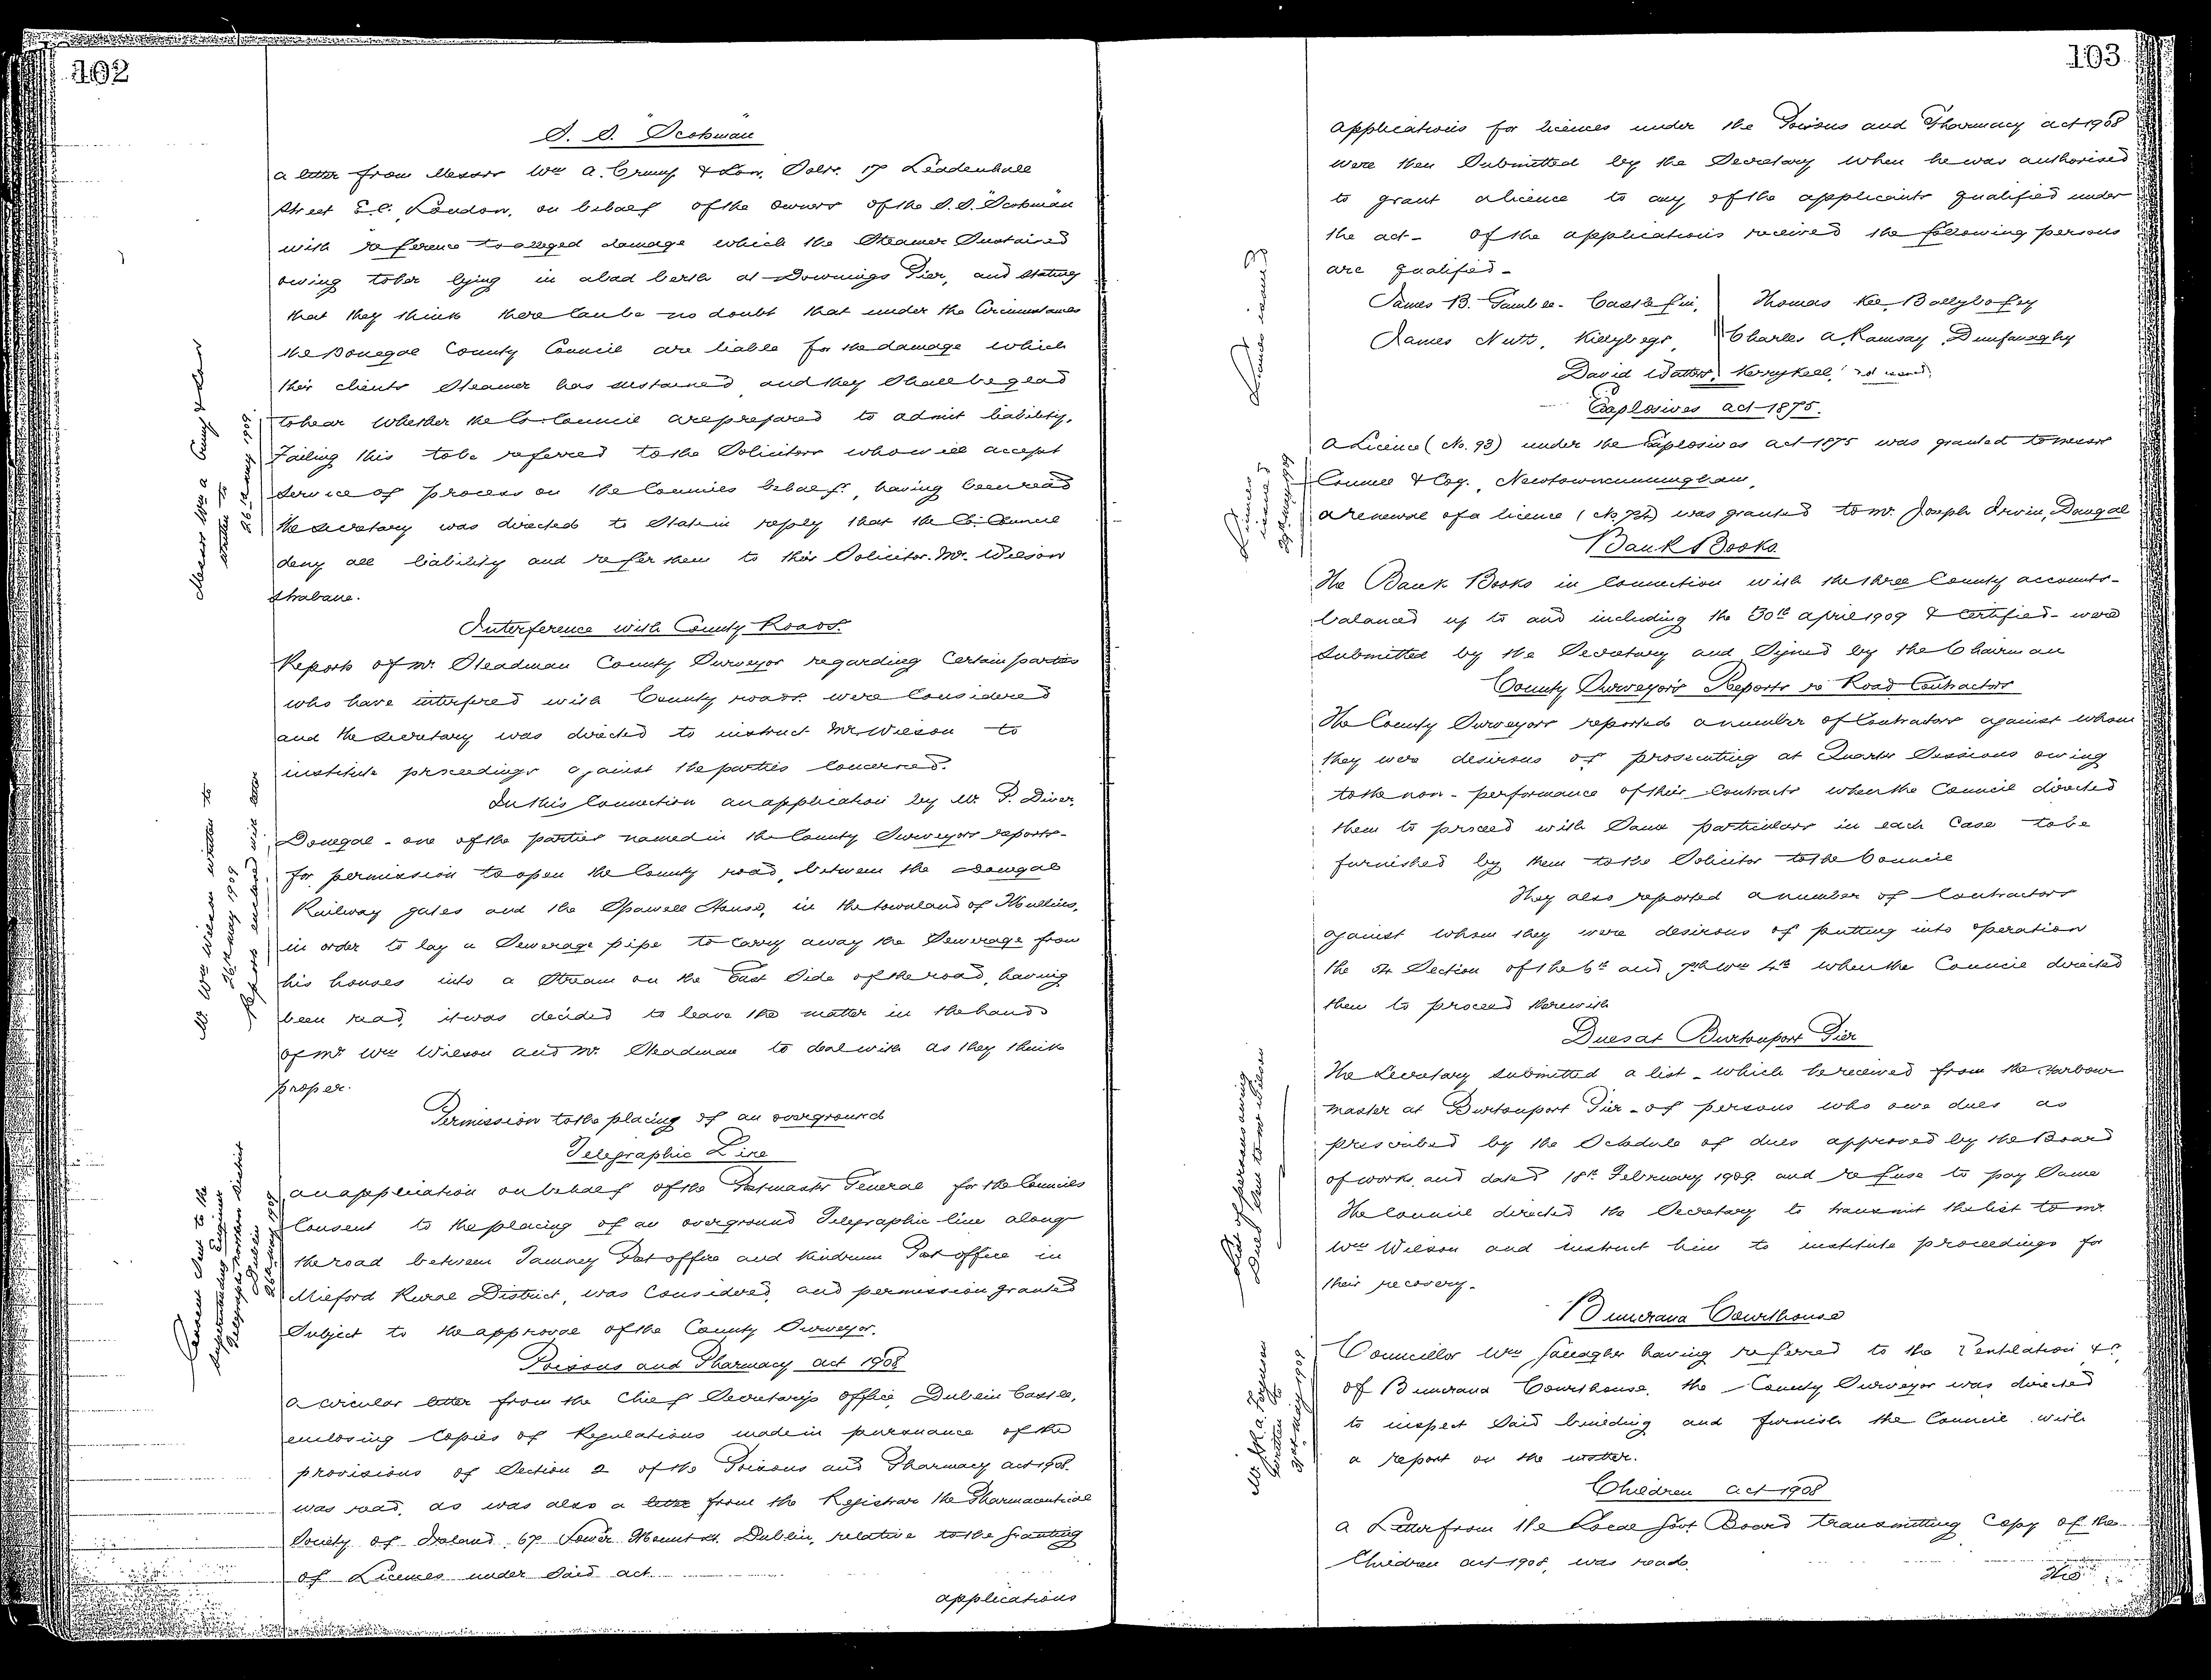 102
S. S. "Scotsman"
a letter from Messrs Wm A. Crump & Son, Solrs. 17 Leadenhall
Street E.C. London, on behalf of the owners of the S.S. "Scotsman"
with reference to alleged damage which the Steamer Sustained
owing to her lying in a bad berth at Downings Pier, and stating
that they think there can be no doubt that under the Circumstances
the Donegal County Council are liable for the damage which
their clients Steamer has sustained and they Shall be glad
to hear whether the Co. Council are prepared to admit liability.
Failing this to be referred to the Solicitors who will accept
service of process on the Councils behalf, having been read
the secretary was directed to State in reply that the Co. Council
deny all liability and refer them to their Solicitor. Mr. Wilson
Strabane.
Messrs Wm A Crump & Son
written to
26th May 1909
Interference with County Roads.
Reports of Mr Steadman County Surveyor regarding Certain parties
who have interfered with County roads were Considered
and the secretary was directed to instruct Mr. Wilson to
institute proceedings against the parties Concerned.
In this Connection an application by Mr. P. Diver,
Donegal - one of the parties named in the County Surveyors reports -
for permission to open the County road, between the Donegal
Railway gates and the Spawell House, in the townland of Mullins,
in order to lay a Sewerage pipe to carry away the Sewerage from
his houses into a Stream on the East Side of the road, having
been read, it was decided to leave the matter in the hands
of Mr Wm Wilson and Mr. Steadman to deal with as they think
proper.
Mr. Wm Wilson written to
26th May 1909
Reports enclosed with letter
Permission to the placing of an overground
Telegraphic Line
an application on behalf of the Postmaster General for the Councils
Consent to the placing of an overground Telegraphic line along
the road between Tamney Post office and Kindrum Post office in
Milford Rural District, was Considered, and permission granted
Subject to the approval of the County Surveyor.
Consent Sent to the
Superintending Engineer
Telegraphs Northern District
Dublin
26th May 1909
Poisons and Pharmacy act 1908
a circular letter from the Chief Secretary's office, Dublin Castle,
enclosing Copies of Regulations made in pursuance of the
provisions of Section 2 of the Poisons and Pharmacy act 1908.
was read, as was also a letter from the Registrar the Pharmaceutical
Society of Ireland, 67 Lower Mount St. Dublin, relative to the granting
of Licences under Said act.
applications
103
applications for licences under the Poisons and Pharmacy act 1908
were then Submitted by the Secretary when he was authorised
to grant a licence to any of the applicants qualified under
the act - of the applications received the following persons
are qualified -
James B. Gamble - Castlefin, Thomas Kee, Ballybofey
James Nutt, Killybegs, Charles A. Ramsay, Dunfanaghy
David Watters, Kerrykeel,
Licences issued
Explosives act 1875.
a Licence (No. 93) under the Explosives act 1875 was granted to messrs
& Coy., Newtowncunningham,
a renewal of a licence (No. 72) was granted to Mr. Joseph Irwin, Donegal
Licences
issued
29th May 1909
Bank Books
The Bank Books in Connection with the three County accounts -
balanced up to and including the 30th april 1909 & Certified - were
Submitted by the Secretary and Signed by the Chairman
County Surveyors Reports re Road Contractors
The County Surveyors reported a number of Contractors against whom
they were desirous of prosecuting at Quarter Sessions owing
to the non-performance of their Contracts when the Council directed
them to proceed with Same particulars in each Case to be
furnished by them to the Solicitor to the Council
They also reported a number of Contractors
against whom they were desirous of putting into operation
the 24 Section of the 6th and 7th Wm 4th when the Council directed
them to proceed therewith
Dues at Burtonport Pier
The Secretary submitted a list - which he received from the Harbour
master at Burtonport Pier - of persons who owe dues as
prescribed by the Schedule of dues approved by the Board
of works, and dated 18th February 1909 and refuse to pay Same
The Council directed the Secretary to transmit the list to Mr.
Wm Wilson and instruct him to institute proceedings for
their recovery.
List of persons owing
Dues Sent to Mr Wilson
Buncrana Courthouse
Councillor Wm Gallagher having referred to the Ventilation &c
of Buncrana Courthouse, the County Surveyor was directed
to inspect Said building and furnish the Council with
a report on the matter.
written to
31st May 1909
Children act 1908
a Letter from the Local Govt Board transmitting Copy of the
Children act 1908, was read.
The